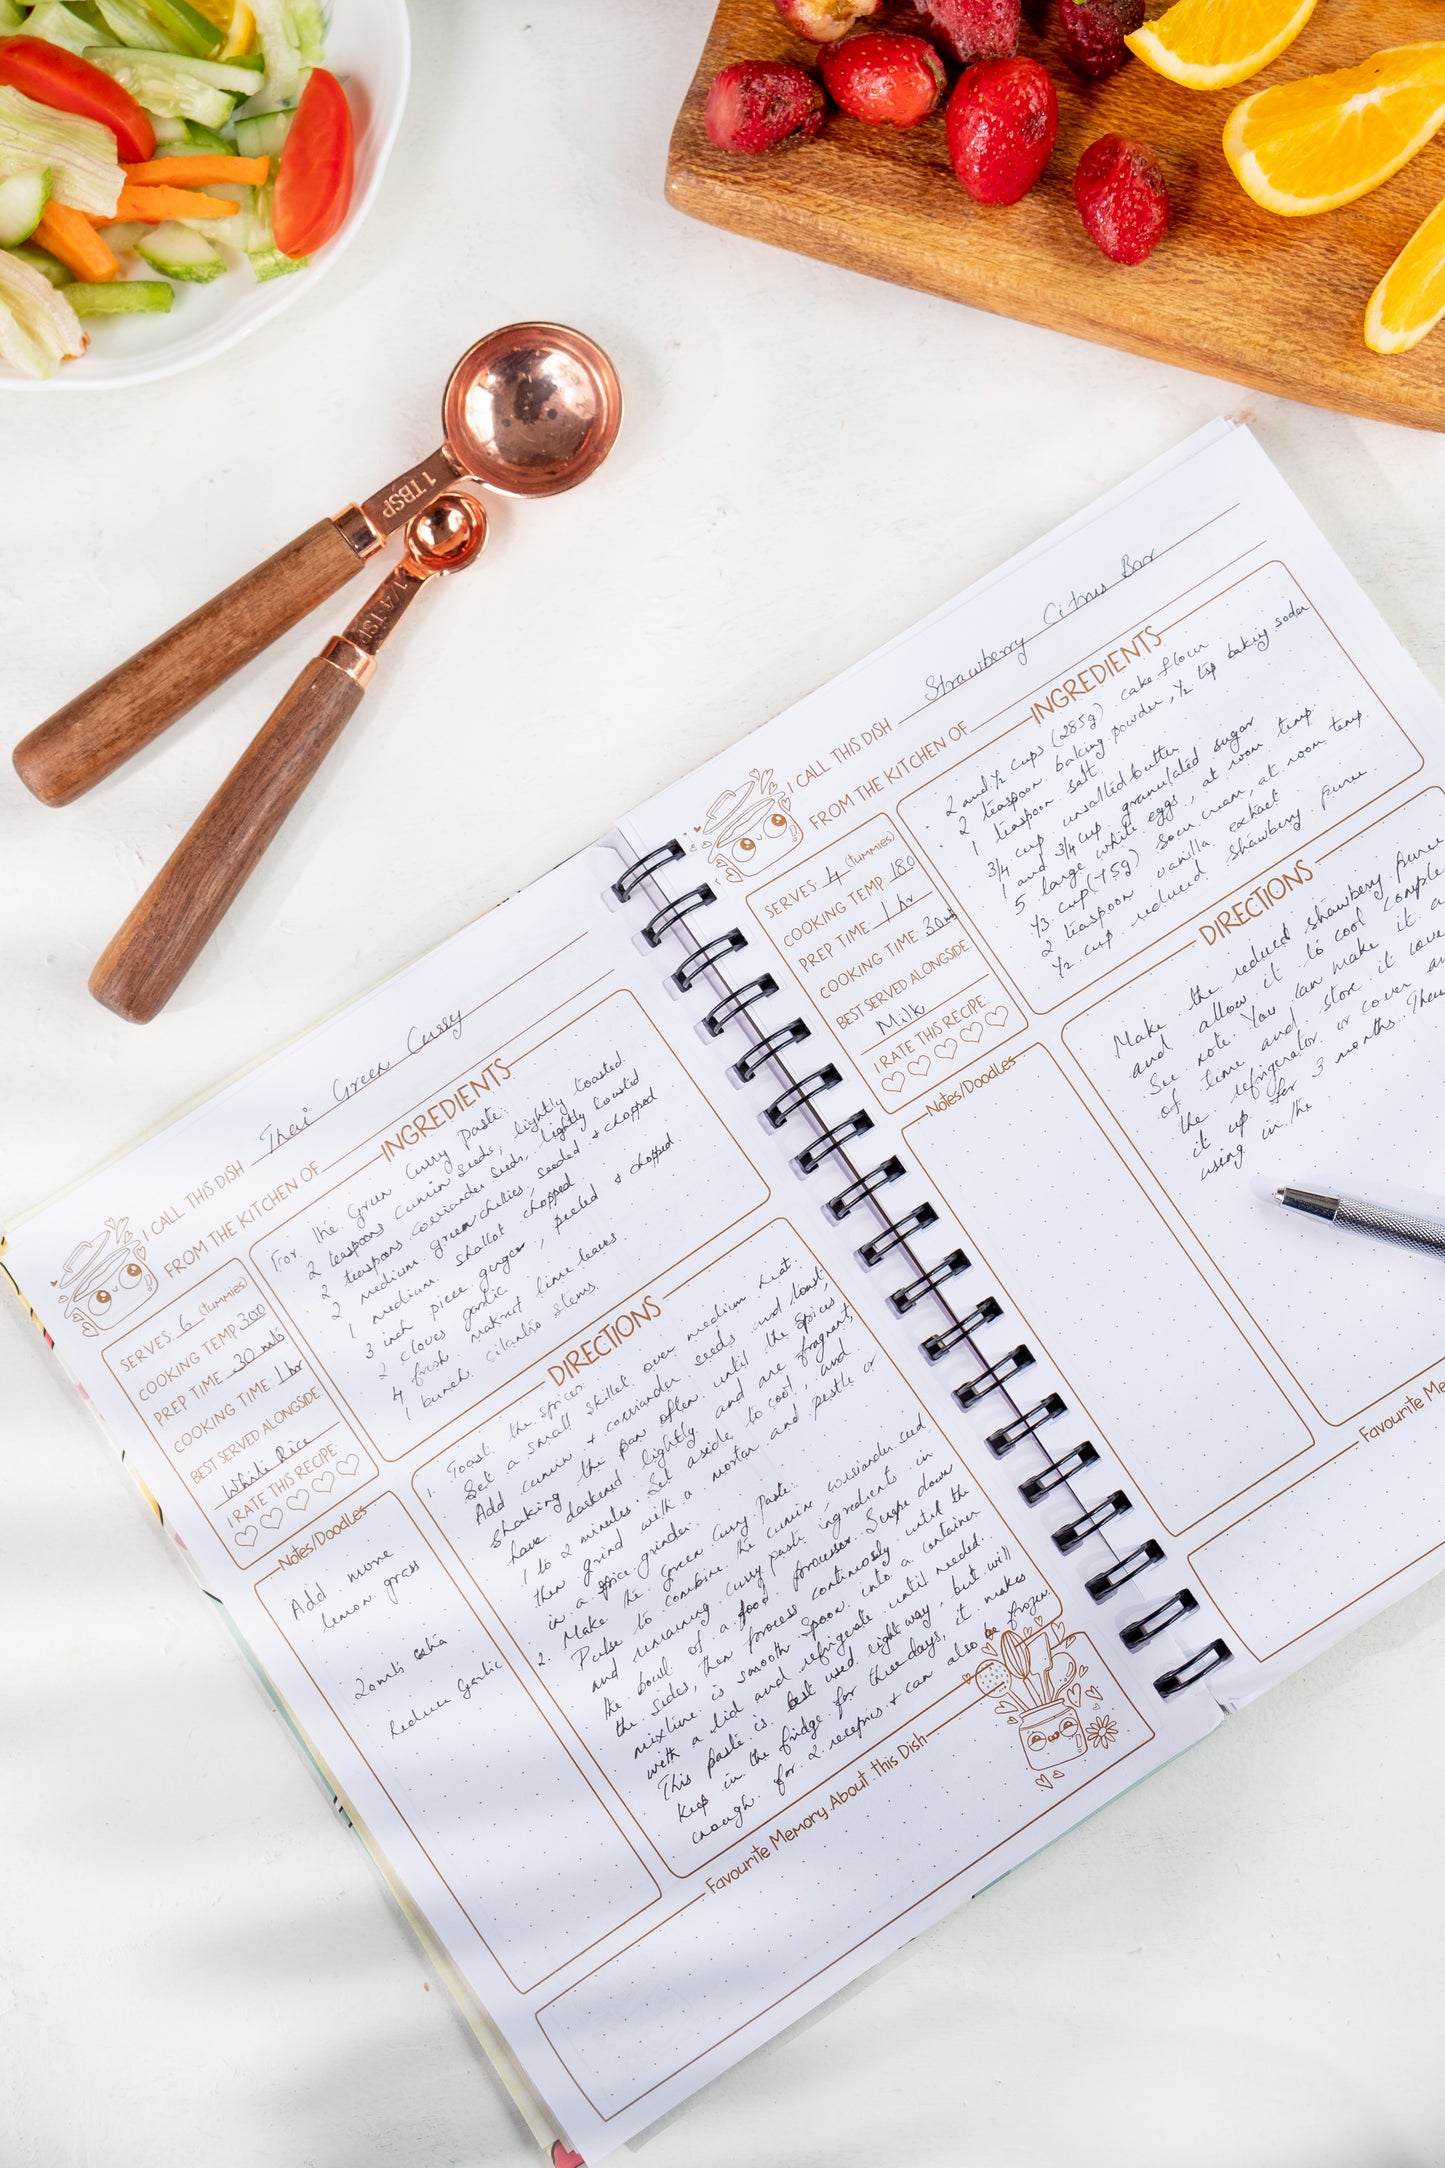 1 TBSP
1/4 TSP
I CALL THIS DISH Thai Green Curry
FROM THE KITCHEN OF
SERVES 6 (tummies)
COOKING TEMP 300
PREP TIME 30 mts
COOKING TIME: 1 hr
BEST SERVED ALONGSIDE:
White Rice
I RATE THIS RECIPE
INGREDIENTS
For the Green Curry paste:
2 teaspoons cumin seeds, lightly toasted
2 teaspoons corriander seeds, lightly toasted
2 medium green chillies, seeded & chopped
1 medium shallot chopped
3 inch piece ginger, peeled & chopped
2 cloves garlic
4 fresh makrut lime leaves
1 bunch cilantro stems
Notes/Doodles
Add more
lemon grass
Reduce Garlic
DIRECTIONS
1. Toast the spices
Set a small skillet over medium
Add cumin & corriander seeds and toast,
shaking the pan often until the spices
have darkened lightly and are fragrant,
1 to 2 minutes. Set aside to cool, and
then grind with a mortar and pestle or
in a spice grinder.
2. Make the Green Curry Paste:
Pulse to combine the cumin, corriander seed
and remaining curry paste ingredients in
the bowl of a food processor. Scrape down
the sides, then process continuously until the
mixture is smooth. Spoon into a container
with a lid and refrigerate until needed.
This paste is best used right away, but will
keep in the fridge for three days, it makes
enough for 2 & can also be frozen
Favourite Memory About this Dish
I CALL THIS DISH Strawberry Citrus Bar
FROM THE KITCHEN OF
SERVES 4 (tummies)
COOKING TEMP 180
PREP TIME: 1 hr
COOKING TIME: 30 mts
BEST SERVED ALONGSIDE:
Milk
I RATE THIS RECIPE
INGREDIENTS
2 and ½ cups (285g) cake flour
2 teaspoon baking powder, ½ tsp baking soda
1 teaspoon salt
3/4 cup unsalted butter
1 and 3/4 cup granulated sugar
5 large white eggs, at room temp.
⅓ cup (75g) Sour cream, at room temp
2 teaspoon vanilla extract
½ cup reduced strawberry puree
Notes/Doodles
DIRECTIONS
Make the reduced strawberry puree
and allow it to cool
See note. You can make it
of time and store it
the refrigerator or cover
it up for 3 months.
using in the
Favourite